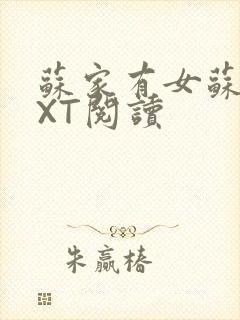 蘇家有女蘇
XT閱讀
朱贏椿